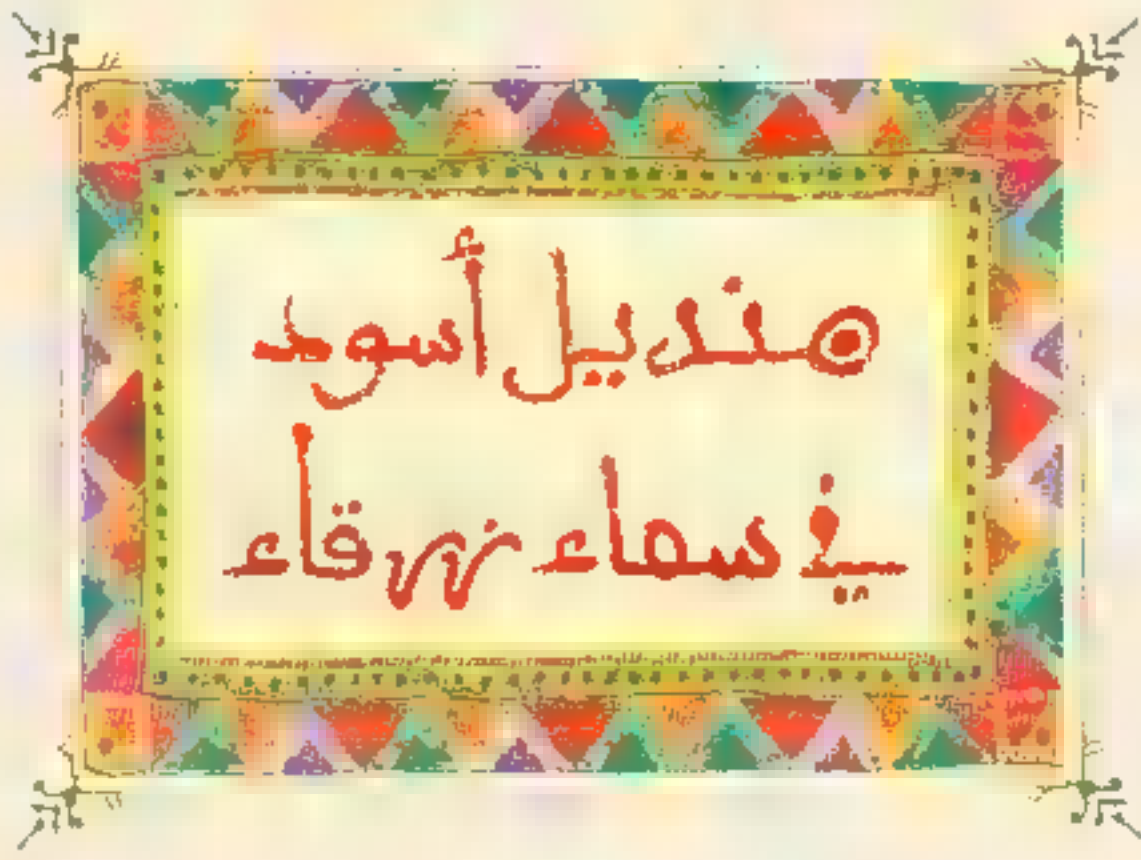 منديل أسود
في سماء زرقاء